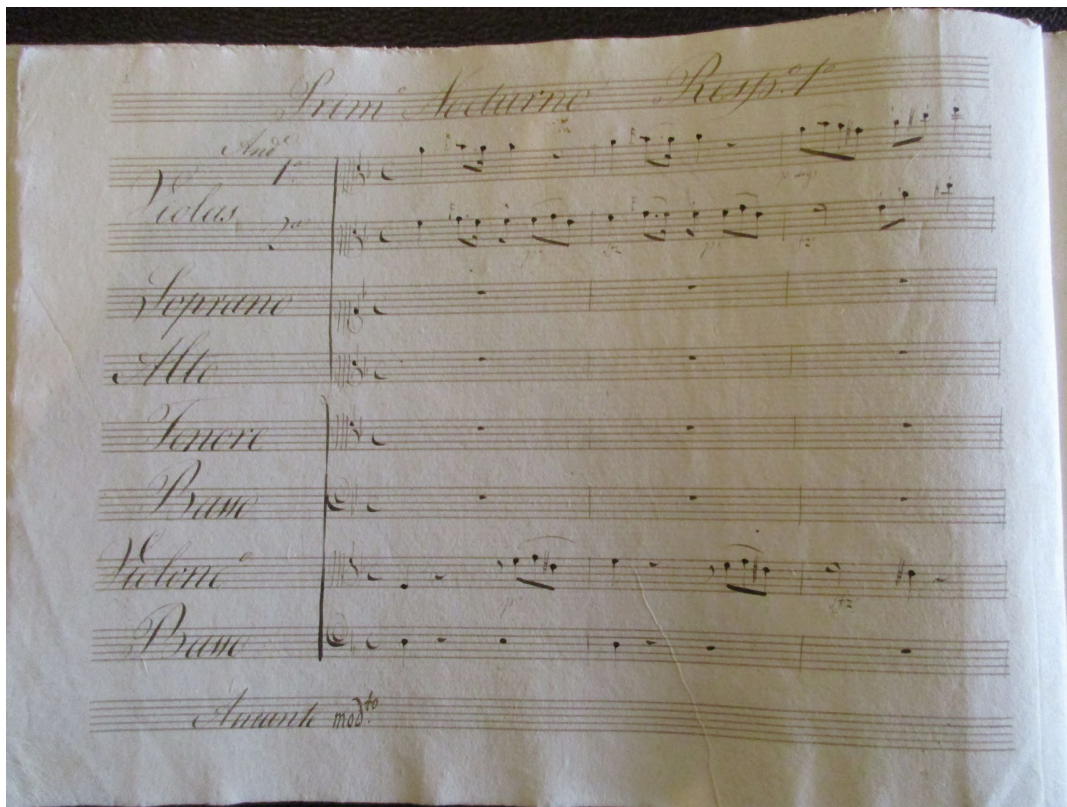 Prim.º Nocturno Resp.º 1º
And.e
Violas 1ª
2ª
Soprano
Alto
Tenore
Basso
Violonc.º
Basso
Andante mod.to